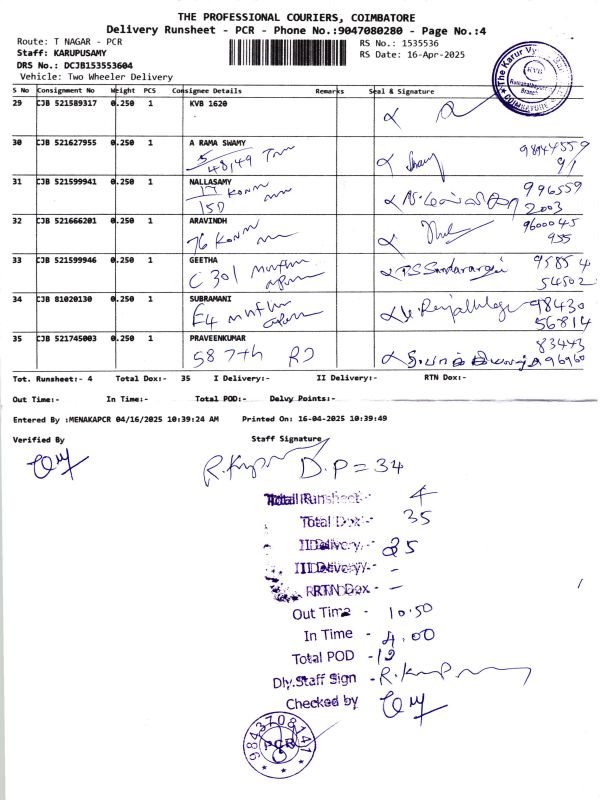 THE PROFESSIONAL COURIERS, COIMBATORE
Delivery Runsheet - PCR - Phone No.:9047080280 - Page No.:4
Route: T NAGAR - PCR
RS No.: 1535536
Staff: KARUPUSAMY
RS Date: 16-Apr-2025
DRS No.: DCJB153553604
Vehicle: Two Wheeler Delivery
The Karur Vy
KVB
Branch
COIMBATORE
S No Consignment No Weight PCS Consignee Details Remarks Seal & Signature
29 CJB 521589317 0.250 1 KVB 1620
30 CJB 521627955 0.250 1 A RAMA SWAMY
48,49
98944559
91
31 CJB 521599941 0.250 1 NALLASAMY
17
15D
996559
2003
32 CJB 521666201 0.250 1 ARAVINDH
76
9600045
955
33 CJB 521599946 0.250 1 GEETHA
C 301
98854
54502
34 CJB 81020130 0.250 1 SUBRAMANI
E4
98430
56814
35 CJB 521745003 1 0.250 PRAVEENKUMAR
58 7th RD
83443
96960
Tot. Runsheet:- 4 Total Dox:- 35 I Delivery:- II Delivery:- RTN Dox:-
Out Time:- In Time:- Total POD:- Delvy Points:-
Entered By :MENAKAPCR 04/16/2025 10:39:24 AM Printed On: 16-04-2025 10:39:49
Verified By Staff Signature
D.P = 34
Total Runsheet - 4
Total Dox - 35
I Delivery - 35
II Delivery - -
RTN Dox - -
Out Time - 10.50
In Time - 4.00
Total POD - 19
Dly.Staff Sign -
Checked by
9843708141
PCR